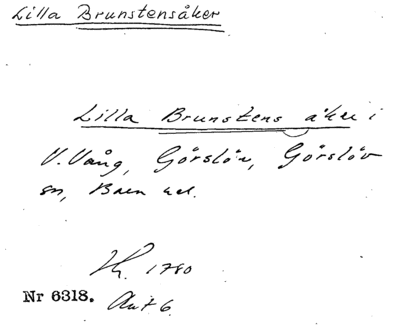 Lilla Brunstensåker
Lilla Brunstens åker i
V. Vång, Görslöv, Görslöv
sn, Bara hd.
1780
Nr 6318. Akt 6.